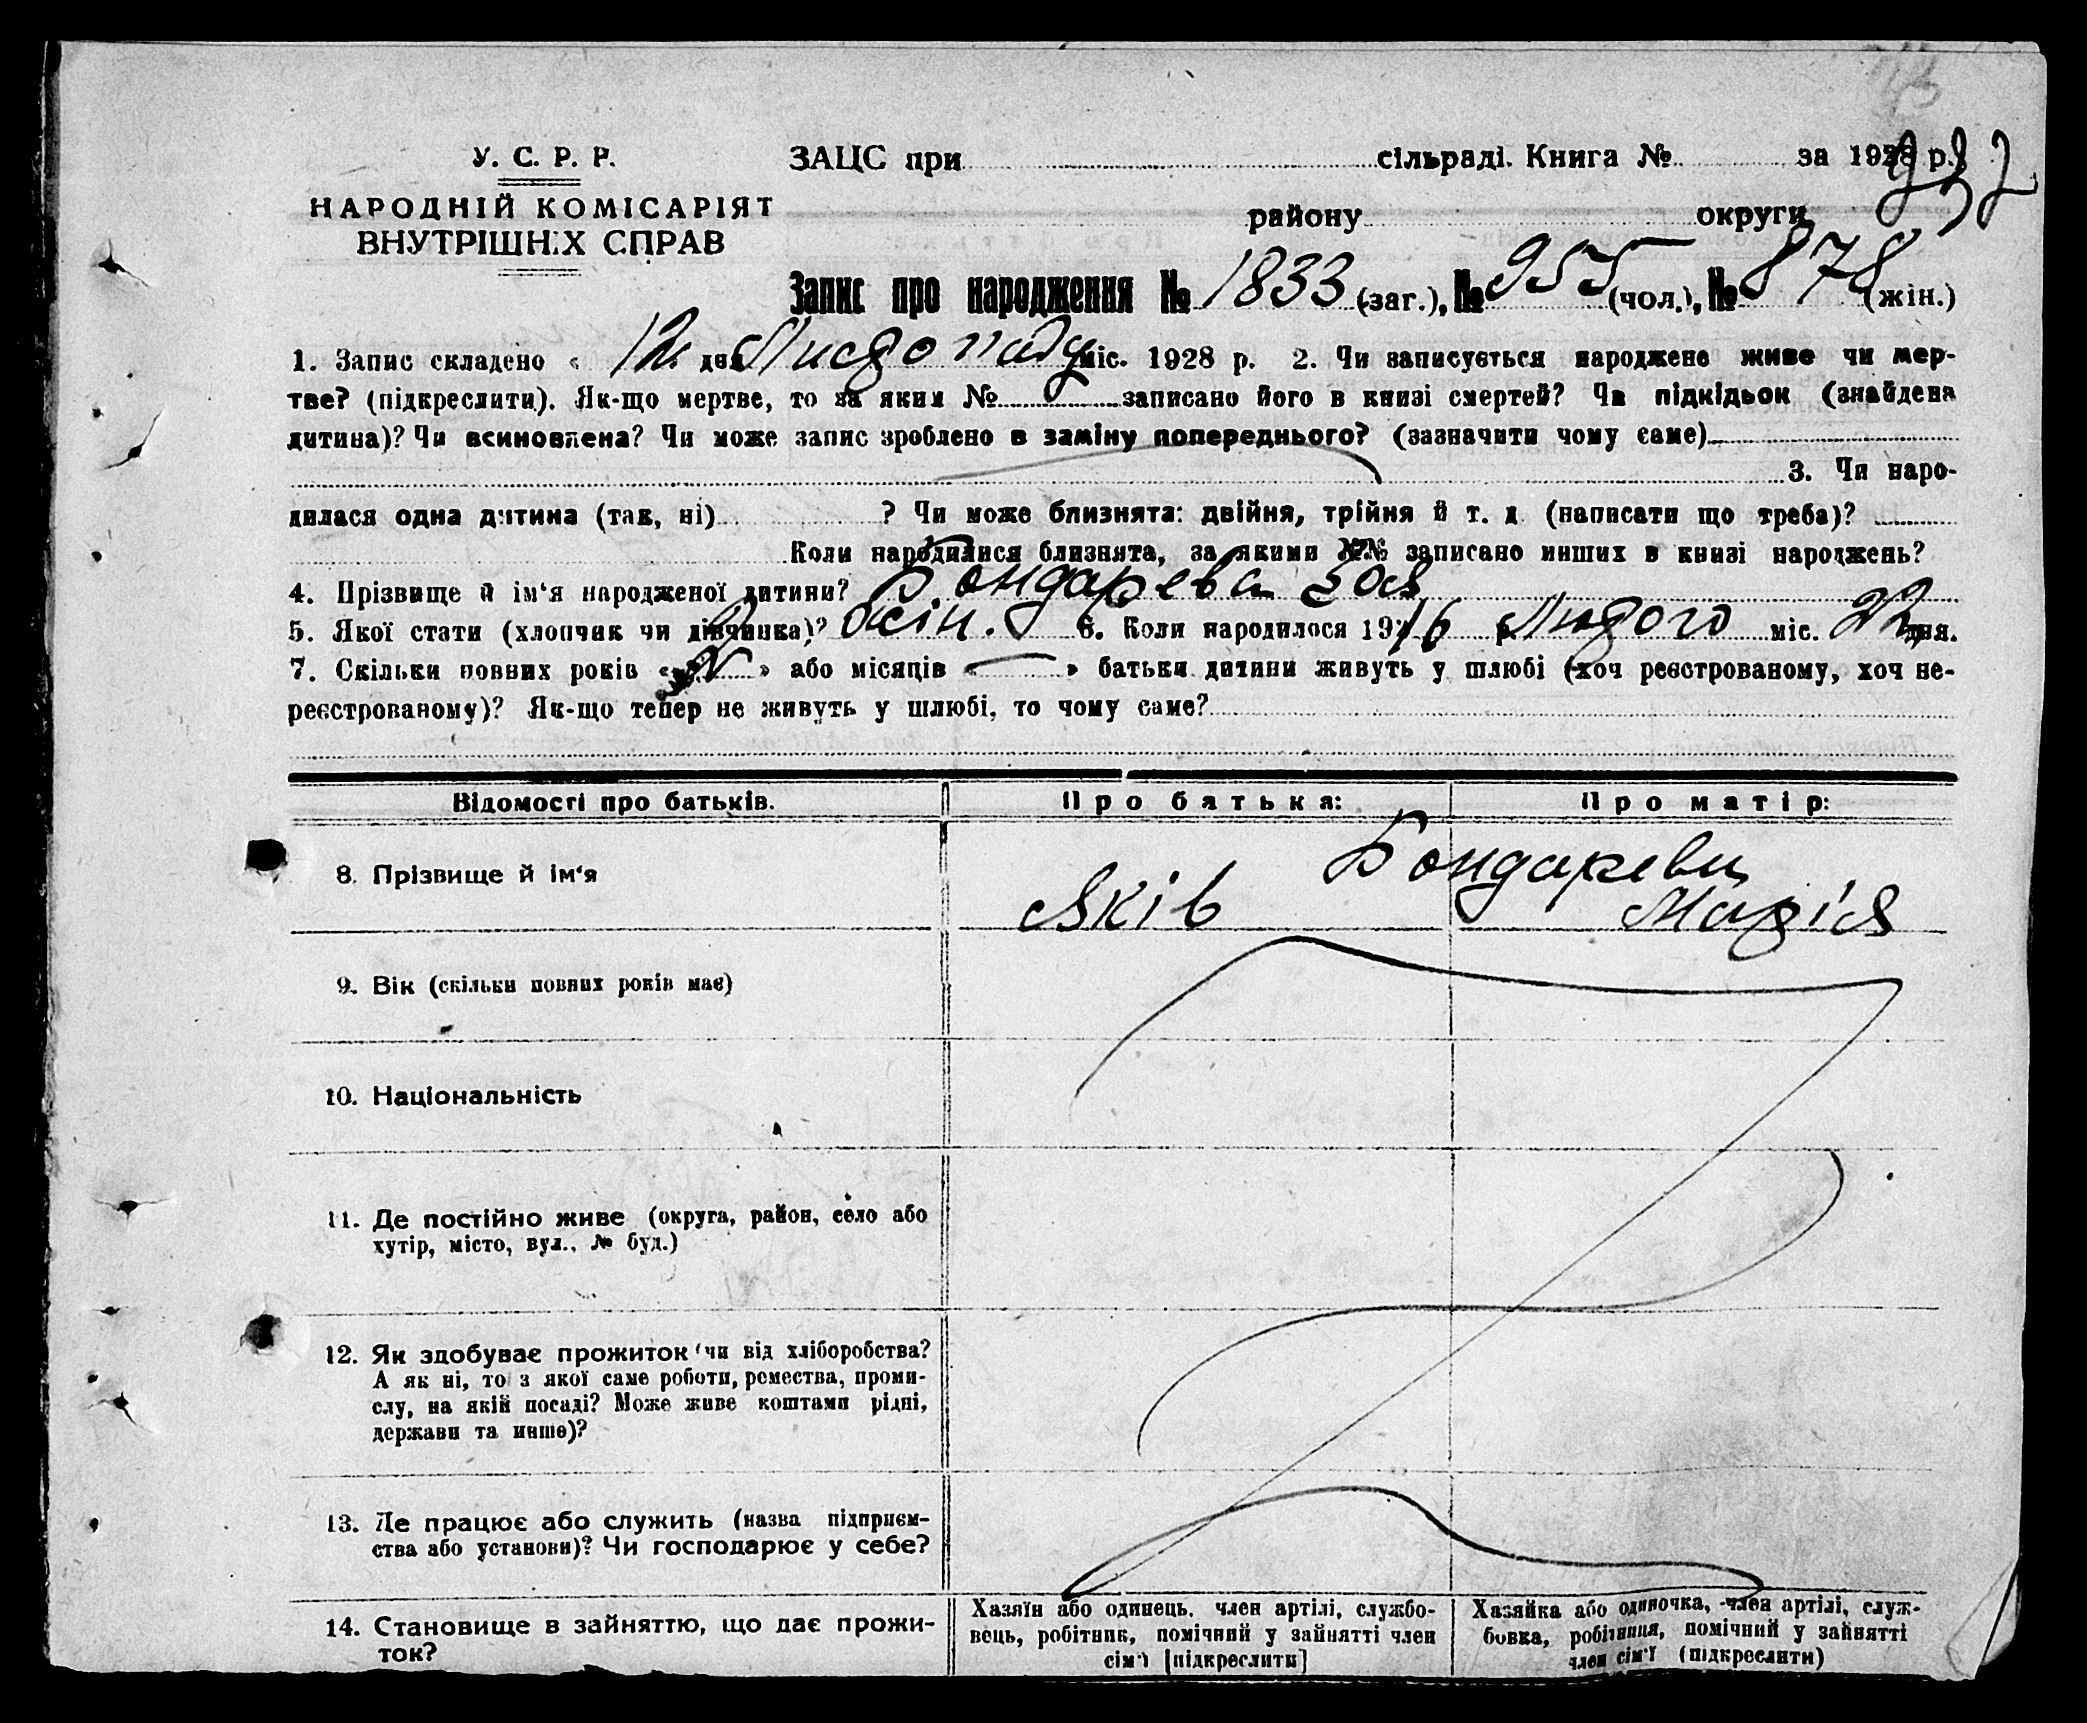 У. С. Р. Р.
НАРОДНІЙ КОМІСАРІЯТ
ВНУТРІШНІХ СПРАВ
ЗАЦС при сільраді. Книга № за 1928 р.
937
району округи
Запис про народження № 1833 (заг.), № 955 (чол.), № 878 (жін.)
1. Запис складено « 12 дня Листопаду міс. 1928 р. 2. Чи записується народжене живе чи мер-
тве? (підкреслити). Як-що мертве, то за яким № записано його в книзі смертей? Чи підкідьок (знайдена
дитина)? Чи всиновлена? Чи може запис зроблено в заміну попереднього? (зазначити чому саме)
3. Чи наро-
дилася одна дитина (так, ні) ? Чи може близнята: двійня, трійня й т. д (написати що треба)?
Коли народилися близнята, за якими №№ записано инших в книзі народжень?
4. Прізвище й ім‘я народженої дитини? Бондарева Зоя
5. Якої стати (хлопчик чи дівчинка)? жін. 6. Коли народилося 1916 р. Лютого міс. 22 дня.
7. Скільки повних років « » або місяців « » батьки дитини живуть у шлюбі (хоч реєстрованому, хоч не-
реєстрованому)? Як-що тепер не живуть у шлюбі, то чому саме?
Відомості про батьків. Про батька: Про матір:
8. Прізвище й ім‘я Бондареви
Яків Марія
9. Вік (скільки повних років має)
10. Національність
11. Де постійно живе (округа, район, село або
хутір, місто, вул., № буд.)
12. Як здобуває прожиток (чи від хліборобства?
А як ні, то з якої саме роботи, ремества, проми-
слу, на якій посаді? Може живе коштами рідні,
держави та инше)?
13. Де працює або служить (назва підприєм-
ства або установи)? Чи господарює у себе?
14. Становище в зайняттю, що дає прожи-
ток?
Хазяїн або одинець, член артілі, службо-
вець, робітник, помічний у зайнятті член
сім'ї [підкреслити]
Хазяйка або одиночка, член артілі, служ-
бовка, робітниця, помічний у зайнятті
член сім'ї (підкреслити)